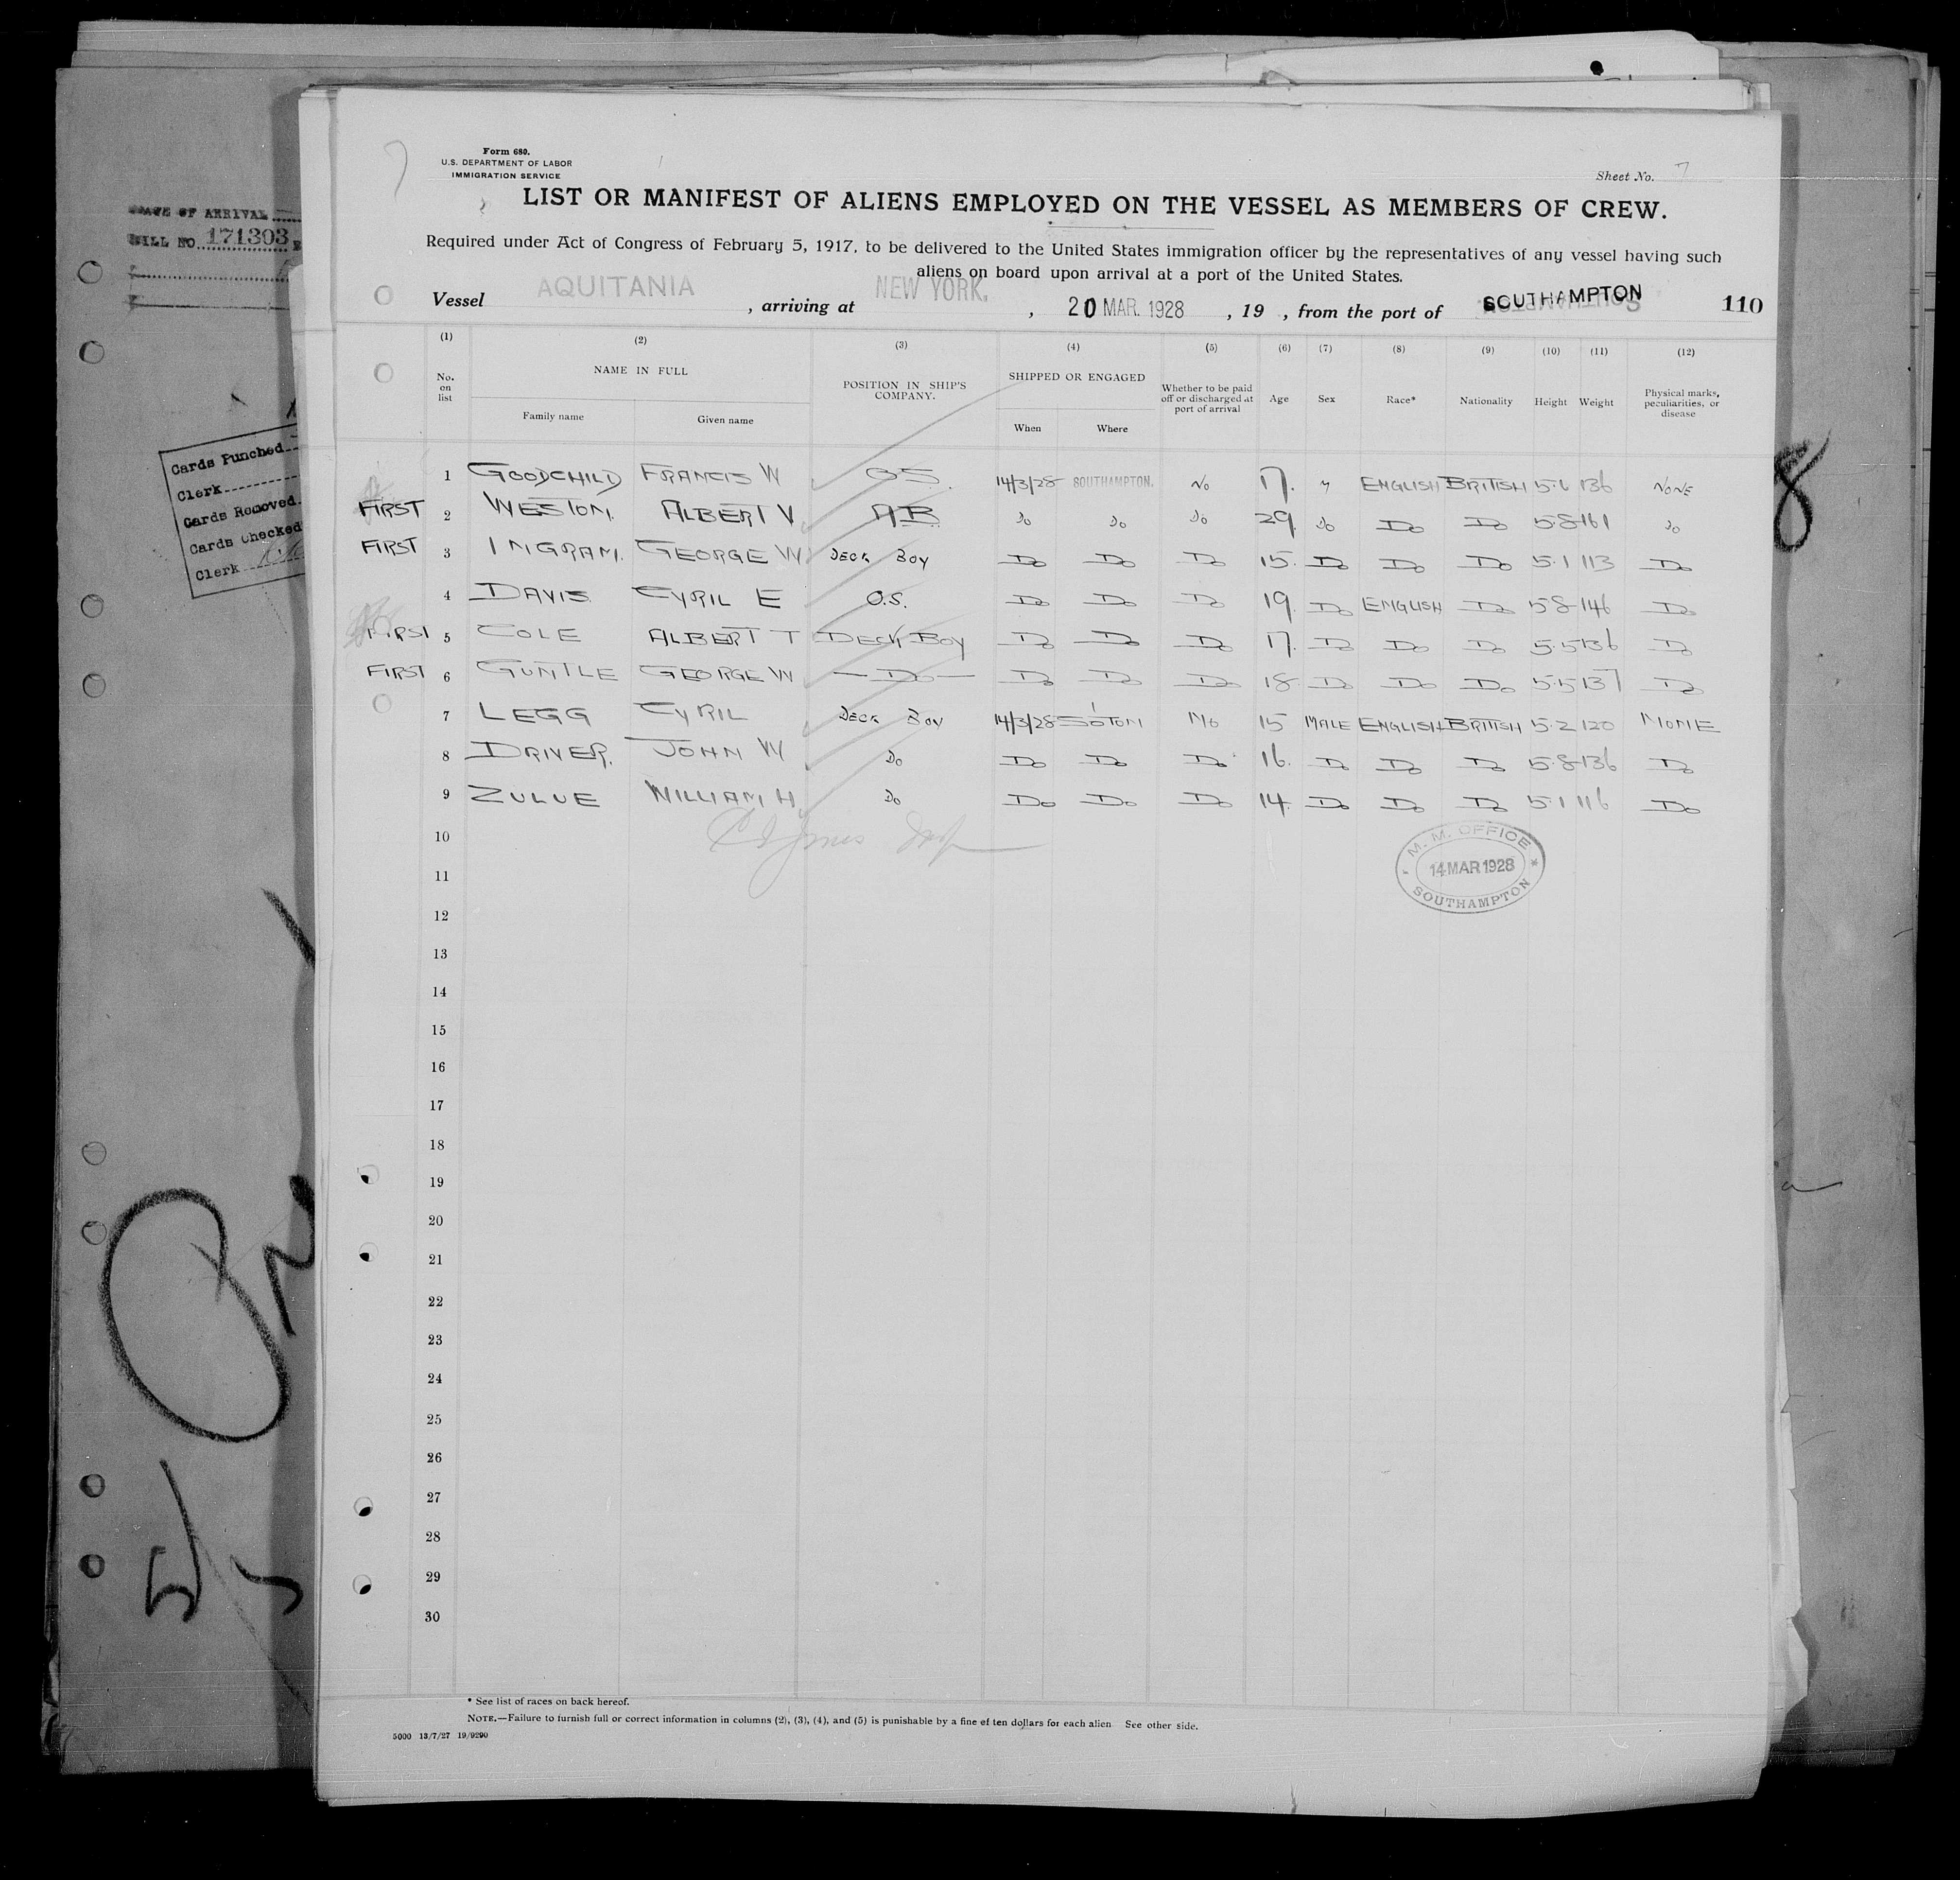 Form 680.
U.S. DEPARTMENT OF LABOR
IMMIGRATION SERVICE
Sheet No. 7
7
LIST OR MANIFEST OF ALIENS EMPLOYED ON THE VESSEL AS MEMBERS OF CREW.
Required under Act of Congress of February 5, 1917, to be delivered to the United States immigration officer by the representatives of any vessel having such
aliens on board upon arrival at a port of the United States.
Vessel AQUITANIA, arriving at NEW YORK, 20 MAR. 1928, 19 , from the port of SOUTHAMPTON 110
(1) (2) (3) (4) (5) (6) (7) (8) (9) (10) (11) (12)
No. on list NAME IN FULL Family name Given name POSITION IN SHIP'S COMPANY. SHIPPED OR ENGAGED When Where Whether to be paid off or discharged at port of arrival Age Sex Race* Nationality Height Weight Physical marks, peculiarities, or disease
1 GOODCHILD FRANCIS W OS. 14/3/28 SOUTHAMPTON. NO 17. M ENGLISH BRITISH 5.6 136 NONE
FIRST 2 WESTON. ALBERT V AB Do Do Do 29. Do Do Do 5.8 161 Do
FIRST 3 INGRAM. GEORGE W DECK BOY Do Do Do 15. Do Do Do 5.1 113 Do
4 DAVIS CYRIL E O.S. Do Do Do 19. Do ENGLISH Do 5.8 146 Do
FIRST 5 COLE ALBERT T DECK BOY Do Do Do 17. Do Do Do 5.5 136 Do
FIRST 6 GUNTLE GEORGE W — Do — Do Do Do 18 Do Do Do 5.5 137 Do
7 LEGG CYRIL DECK BOY 14/3/28 SO'TON NO 15 MALE ENGLISH BRITISH 5.2 120 NONE
8 DRIVER. JOHN W Do Do Do Do 16. Do Do Do 5.8 136 Do
9 ZULUE WILLIAM H. Do Do Do Do 14. Do Do Do 5.1 116 Do
10
11
12
13
14
15
16
17
18
19
20
21
22
23
24
25
26
27
28
29
30
M. M. OFFICE
14 MAR 1928
SOUTHAMPTON
* See list of races on back hereof.
NOTE.—Failure to furnish full or correct information in columns (2), (3), (4), and (5) is punishable by a fine of ten dollars for each alien See other side.
5000 13/7/27 19/9290
OF ARRIVAL
NO. 171303
Cards Punched
Clerk
Cards Removed
Cards Checked
Clerk
8